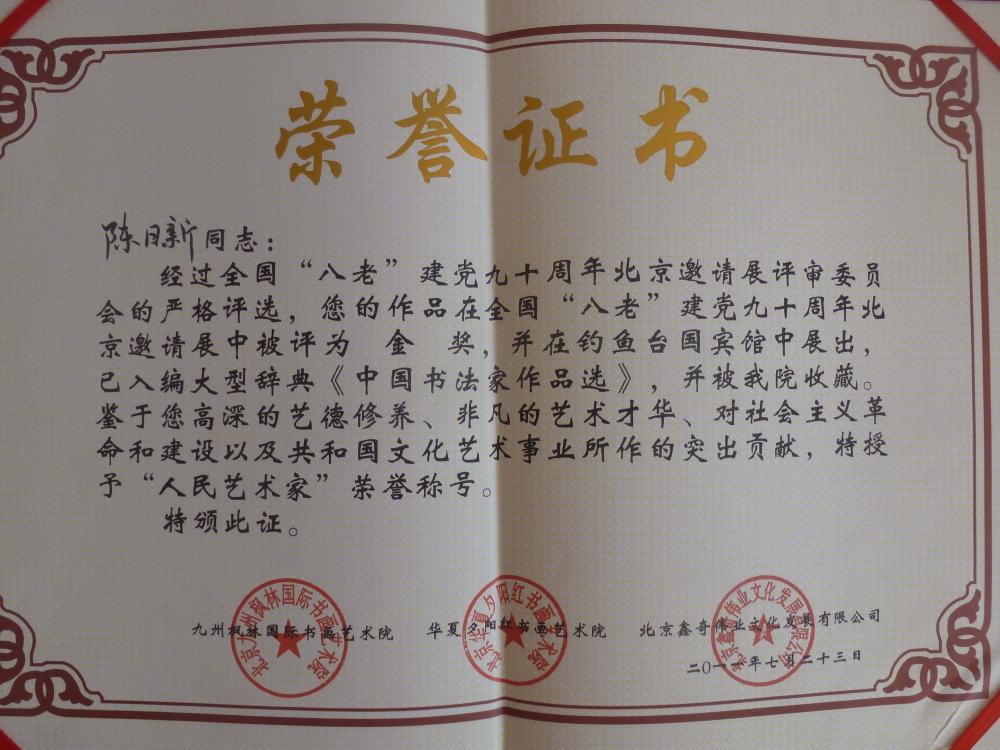 荣誉证书
陈日新同志：
经过全国“八老”建党九十周年北京邀请展评审委员
会的严格评选，您的作品在全国“八老”建党九十周年北
京邀请展中被评为 金 奖，并在钓鱼台国宾馆中展出，
已入编大型辞典《中国书法家作品选》，并被我院收藏。
鉴于您高深的艺德修养、非凡的艺术才华、对社会主义革
命和建设以及共和国文化艺术事业所作的突出贡献，特授
予“人民艺术家”荣誉称号。
特颁此证。
九州枫林国际书画艺术院 华夏夕阳红书画艺术院 北京鑫奇伟业文化发展有限公司
北京九州枫林国际书画艺术院
北京华夏夕阳红书画艺术院
北京鑫奇伟业文化发展有限公司
二〇一一年七月二十三日